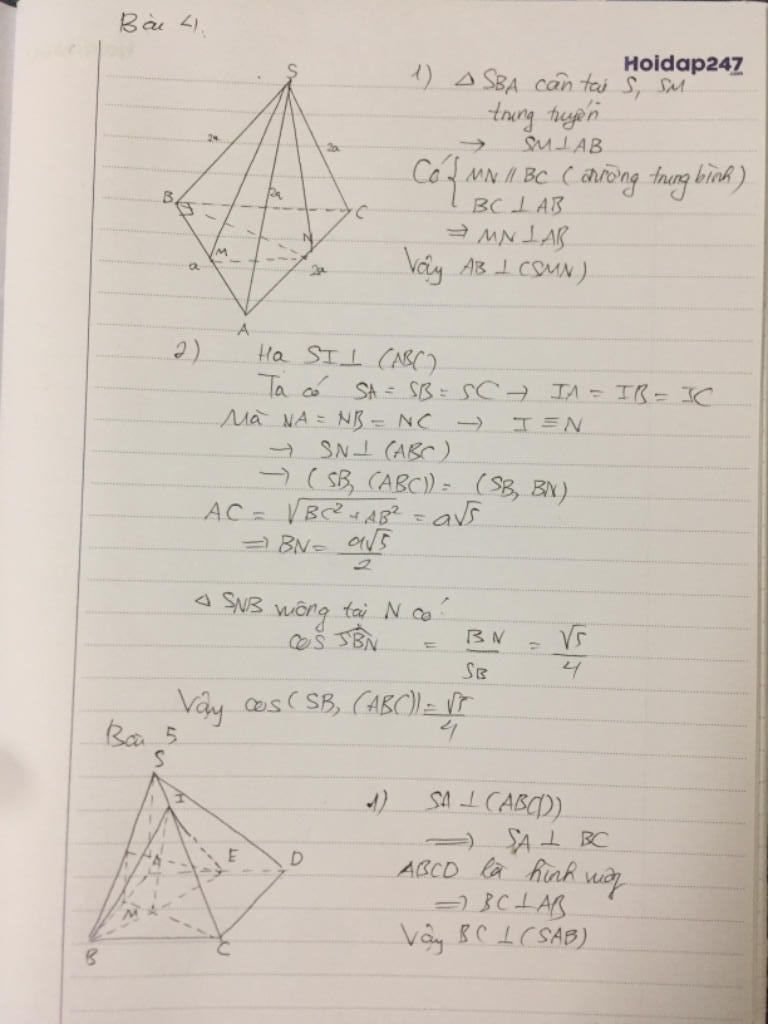 Bài 4.
Hoidap247
.com
S
2a
2a
2a
B
C
M
N
a
2a
A
1) Δ SBA cân tại S, SM
trung tuyến
→ SM ⊥ AB
Có { MN // BC (đường trung bình)
BC ⊥ AB
⇒ MN ⊥ AB
Vậy AB ⊥ (SMN)
2) Hạ SI ⊥ (ABC)
Ta có SA = SB = SC → IA = IB = IC
Mà NA = NB = NC → I ≡ N
→ SN ⊥ (ABC)
→ (SB, (ABC)) = (SB, BN)
AC = √(BC² + AB²) = a√5
⇒ BN = a√5/2
Δ SNB vuông tại N có:
cos SBN = BN/SB = √5/4
Vậy cos(SB, (ABC)) = √5/4
Bài 5
S
I
A
E
D
M
B
C
1) SA ⊥ (ABCD)
⇒ SA ⊥ BC
ABCD là hình vuông
⇒ BC ⊥ AB
Vậy BC ⊥ (SAB)